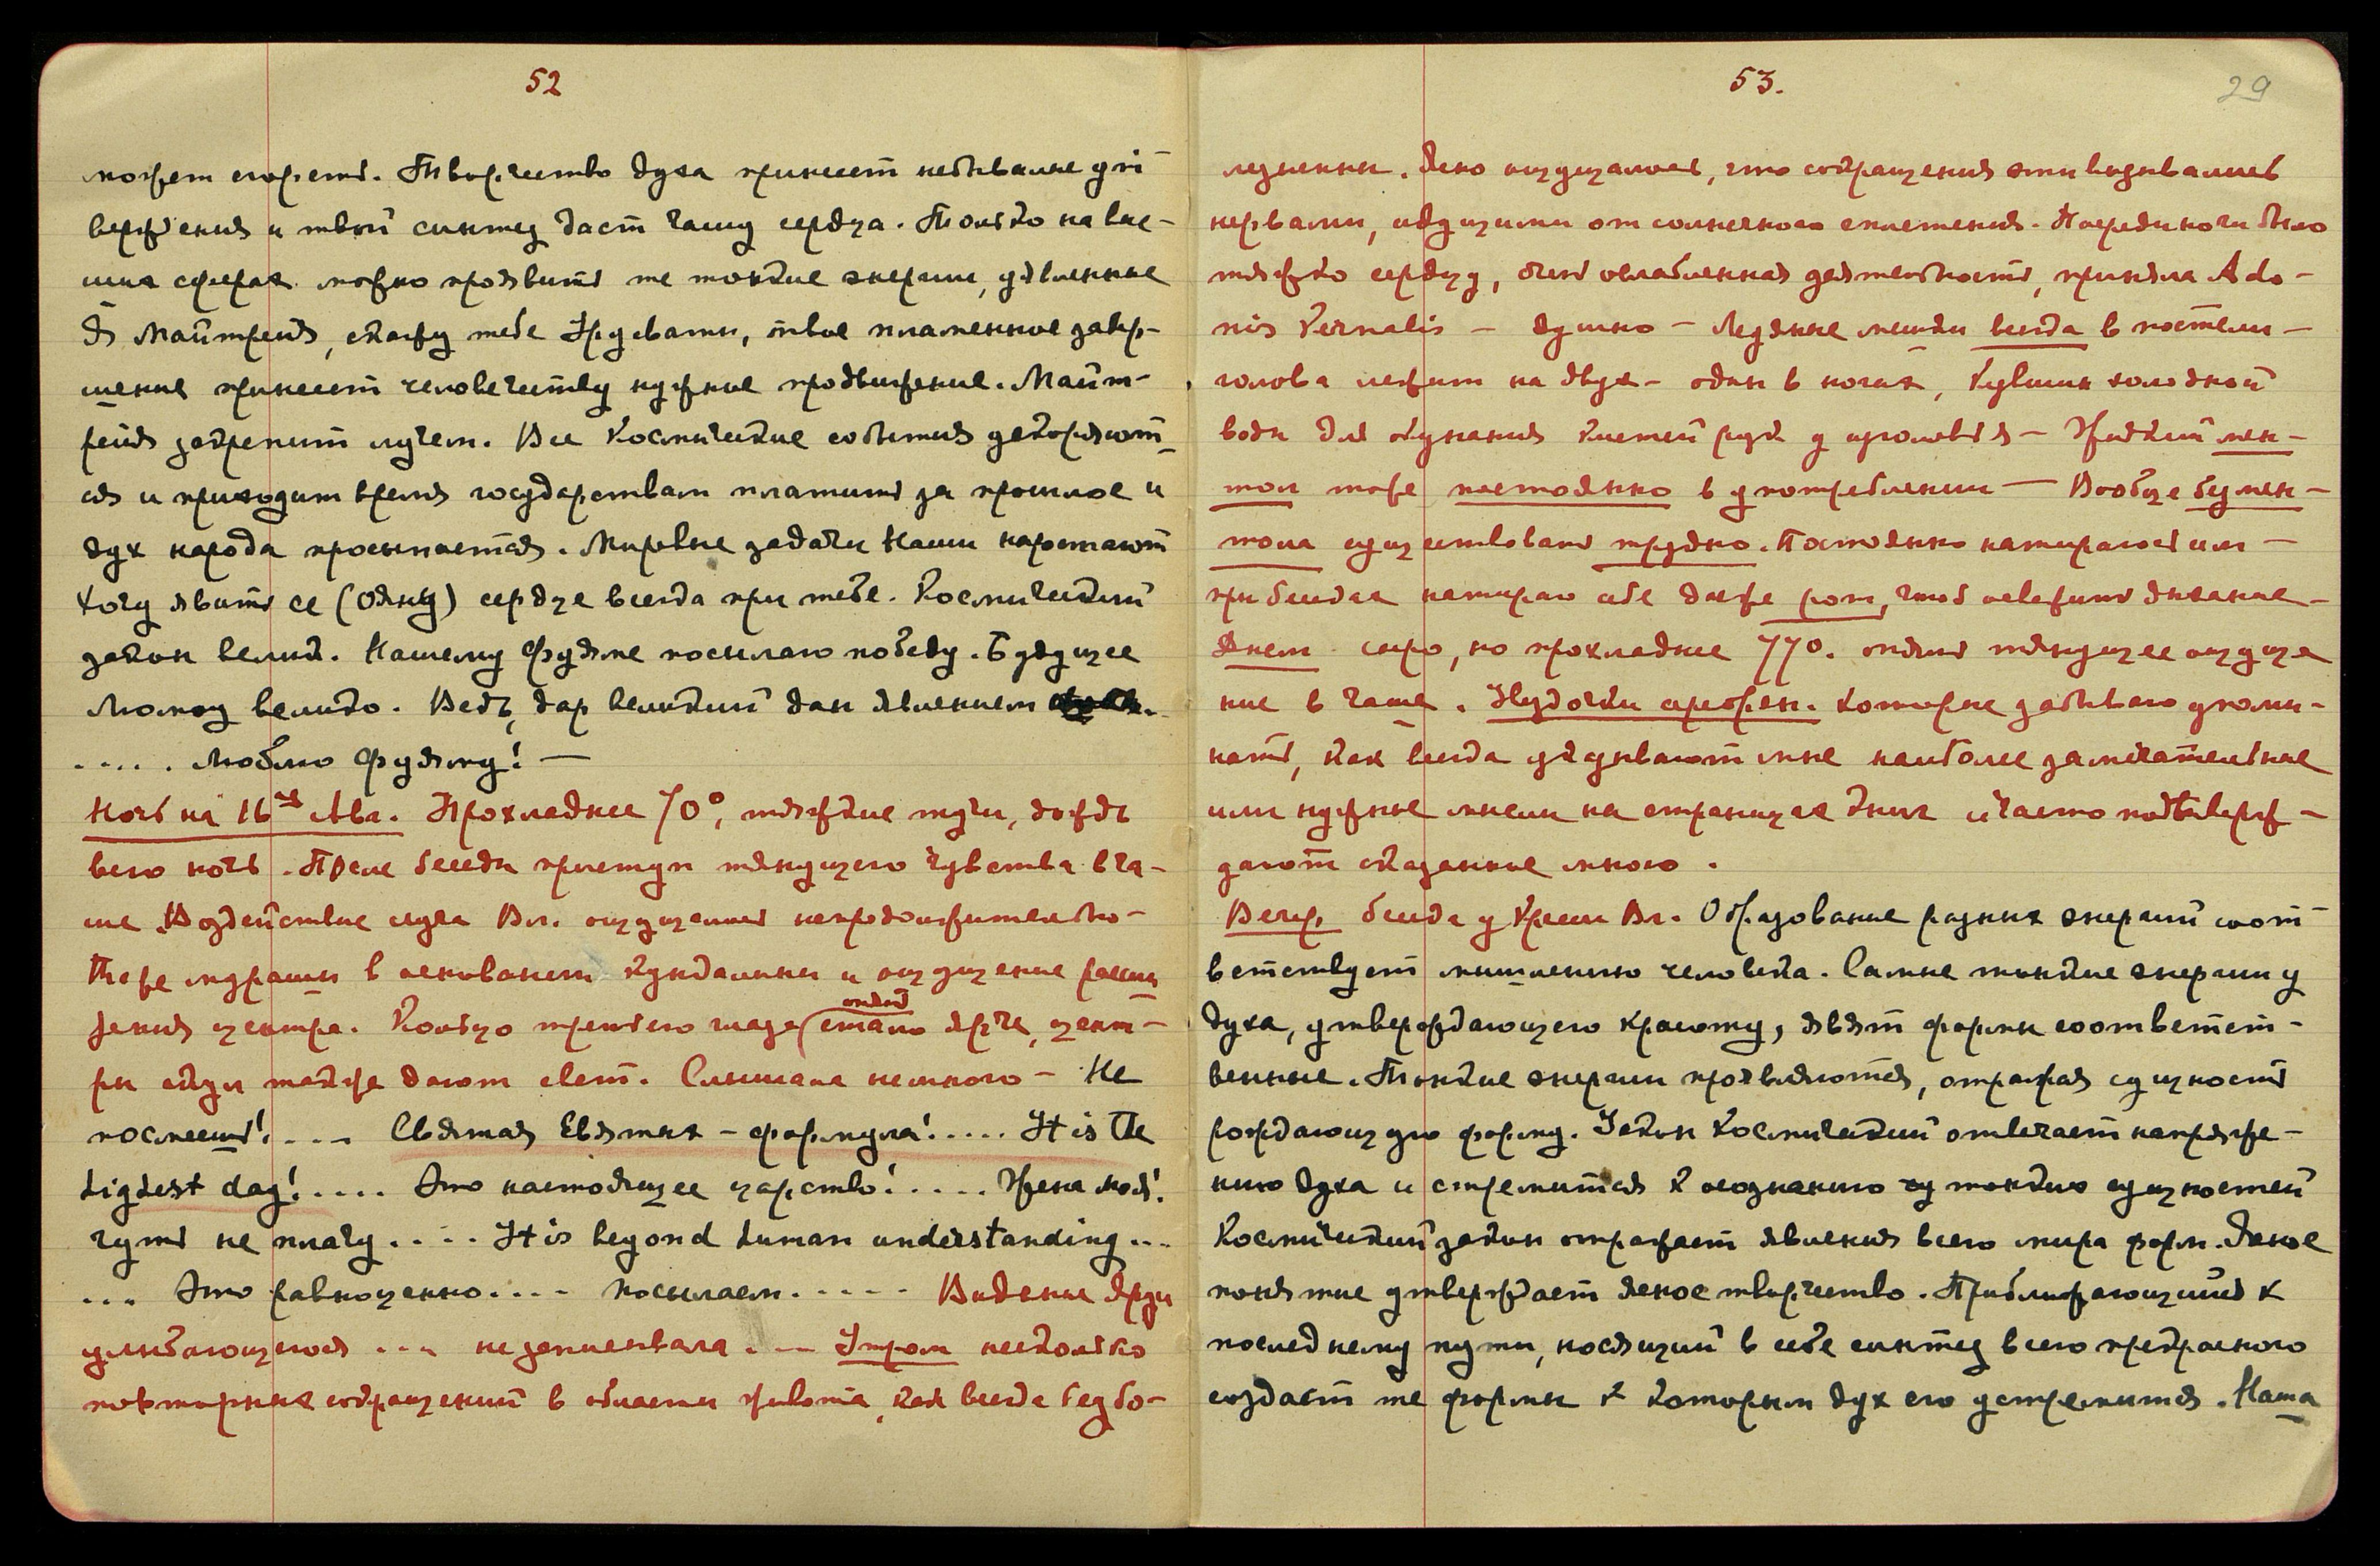 52
может сгореть. Творчество духа принесет небывалые ут
верждения и твой синтез даст чашу сердца. Только на выс-
ших сферах можно проявить те тонкие энергии, явленные
Я Майтрейя, скажу тебе Урусвати, твое пламенное завер-
шение принесет человечеству нужное продвижение. Майт-
рейя закрепит лучем. Все Космические события ускоряют
ся и приходит время государствам платить за прошлое и
дух народа просыпается. Мировые задачи Наши нарастают
хочу явить се (Ояну) сердце всегда при тебе. Космический
закон велик. Нашему Фуяме посылаю победу. Будущее
Моему велико. Ведь, дар великий дан явлением
..... Люблю Фуяму! —
Ночь на 16ое Авг. Прохладнее 70°, тяжкие тучи, дождь
всю ночь. После беседы приступ тянущего чувства в Ча-
ше. Воздействие луча Вл. ощущалось непродолжительно-
Тоже мураши в основании Кундалини и ощущение
жения центра. Кольцо третьего глаза (опять) стало ярче, цент-
ры скул также дают свет. Слышала немного — Не
посмеешь!.... Святая Святых — формула!..... It is the
highest day!.... Это настоящее царство!.... Жена моя!
чуть не плачу.... It is beyond human understanding...
... Это равноценно.... посылаем..... Видение
улыбающегося ... не записывала ... Утром несколько
повторных сокращений в области живота, как всегда безбо-
53.
29
лезненны. Ясно ощущалось, что сокращения эти вызывались
нервами, идущими от солнечного сплетения. Посреди ночи было
тяжко сердцу, очень ослабленная деятельность, приняла Ado-
nis Vernalis — душно — Ледяные мешки всегда в постели —
голова лежит на двух — один в ногах, Кувшин холодной
воды для окунания кистей рук у изголовья — Жидкий мен-
тол тоже постоянно в употреблении — Вообще без мен-
тола существовать трудно. Постоянно натираюсь им —
при беседах натираю себе даже рот, чтоб освежить дыхание —
Днем сыро, но прохладнее 77°. опять тянущее ощуще
ние в чаше. Звездочки серебрен. которые забываю упоми-
нать, как всегда указывают мне наиболее замечательные
или нужные мысли на страницах книг и часто подтверж-
дают сказанное мною.
Вечер, беседа у Креси Вл. Образование разных энергий соот
ветствует мышлению человека. Самые тонкие энергии у
духа, утверждающего красоту, явят формы соответст-
венные. Тонкие энергии проявляются, отражая сущность
рождающую форму. Закон Космический отвечает напряже-
нию духа и стремится к осознанию тонких сущностей
Космический закон отражает явления всего мира форм. Ясное
понятие утверждает ясное творчество. Приближающийся к
последнему пути, носящий в себе синтез всего прекрасного
создаст те формы к которым дух его устремится. Наша